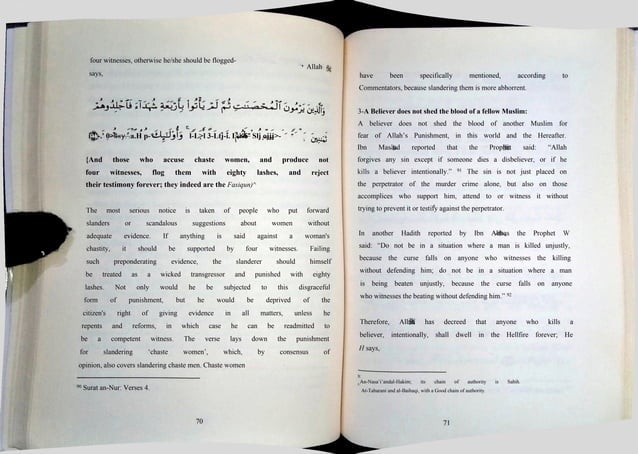 four witnesses, otherwise he/she should be flogged-
Allah
says,
وَالَّذِينَ يَرْمُونَ الْمُحْصَنَتِ ثُمَّ لَمْ يَأْتُوا بِأَرْبَعَةِ شُهَدَاءَ فَاجْلِدُوهُمْ
{And those who accuse chaste women, and produce not
four witnesses, flog them with eighty lashes, and reject
their testimony forever; they indeed are the Fasiqun)^
The most serious notice is taken of people who put forward
slanders or scandalous suggestions about women without
adequate evidence. If anything is said against a woman's
chastity, it should be supported by four witnesses. Failing
such preponderating evidence, the slanderer should himself
be treated as a wicked transgressor and punished with eighty
lashes. Not only would he be subjected to this disgraceful
form of punishment, but he would be deprived of the
citizen's right of giving evidence in all matters, unless he
repents and reforms, in which case he can be readmitted to
be a competent witness. The verse lays down the punishment
for slandering ‘chaste women’, which, by consensus of
opinion, also covers slandering chaste men. Chaste women
90 Surat an-Nur. Verses 4.
70
have been specifically mentioned, according to
Commentators, because slandering them is more abhorrent.
3-A Believer does not shed the blood of a fellow Muslim:
A believer does not shed the blood of another Muslim for
fear of Allah’s Punishment, in this world and the Hereafter.
Ibn reported that the said: “Allah
forgives any sin except if someone dies a disbeliever, or if he
kills a believer intentionally.” 91 The sin is not just placed on
the perpetrator of the murder crime alone, but also on those
accomplices who support him, attend to or witness it without
trying to prevent it or testify against the perpetrator.
In another Hadith reported by Ibn the Prophet W
said: “Do not be in a situation where a man is killed unjustly,
because the curse falls on anyone who witnesses the killing
without defending him; do not be in a situation where a man
is being beaten unjustly, because the curse falls on anyone
who witnesses the beating without defending him.” 92
Therefore, has decreed that anyone who kills a
believer, intentionally, shall dwell in the Hellfire forever; He
H says,
An-Nasa’i’andal-Hakim; its chain of authority is Sahih.
At-Tabarani and al-Baihaqi, with a Good chain of authority.
71